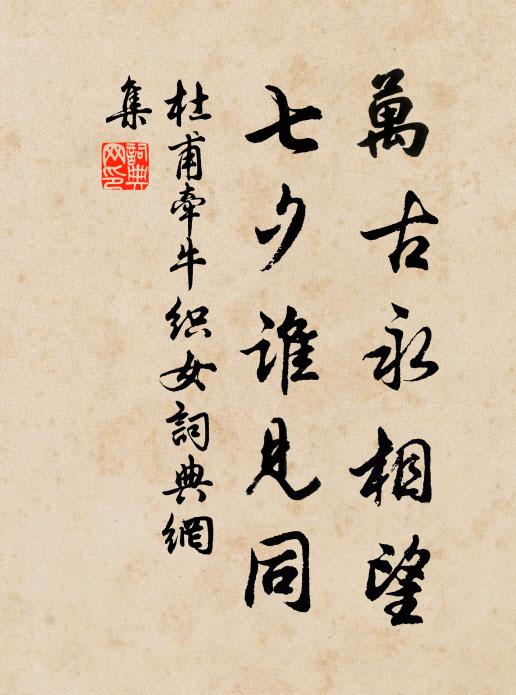 萬古永相望
七夕誰見同
杜甫牽牛織女詞典網
集
詞典
網印